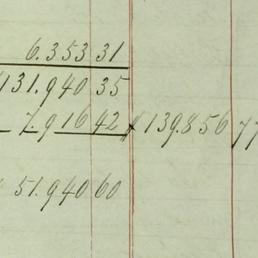 6.353 31
131.940 35
7.916 42 $139.856 77
51.940 60